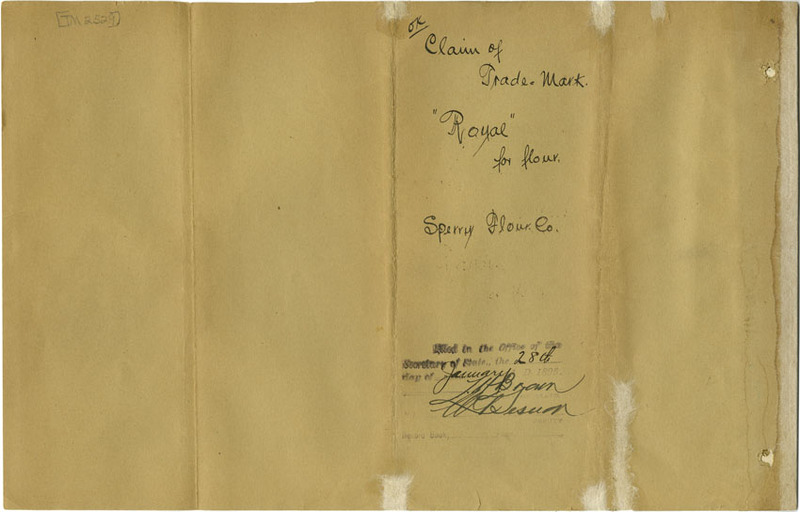 [TM 2529]
OK
Claim of
Trade-Mark.
"Royal"
for flour.
Sperry Flour Co.
Filed in the Office of the
Secretary of State, the 28th
day of January A.D. 1898
L H Brown